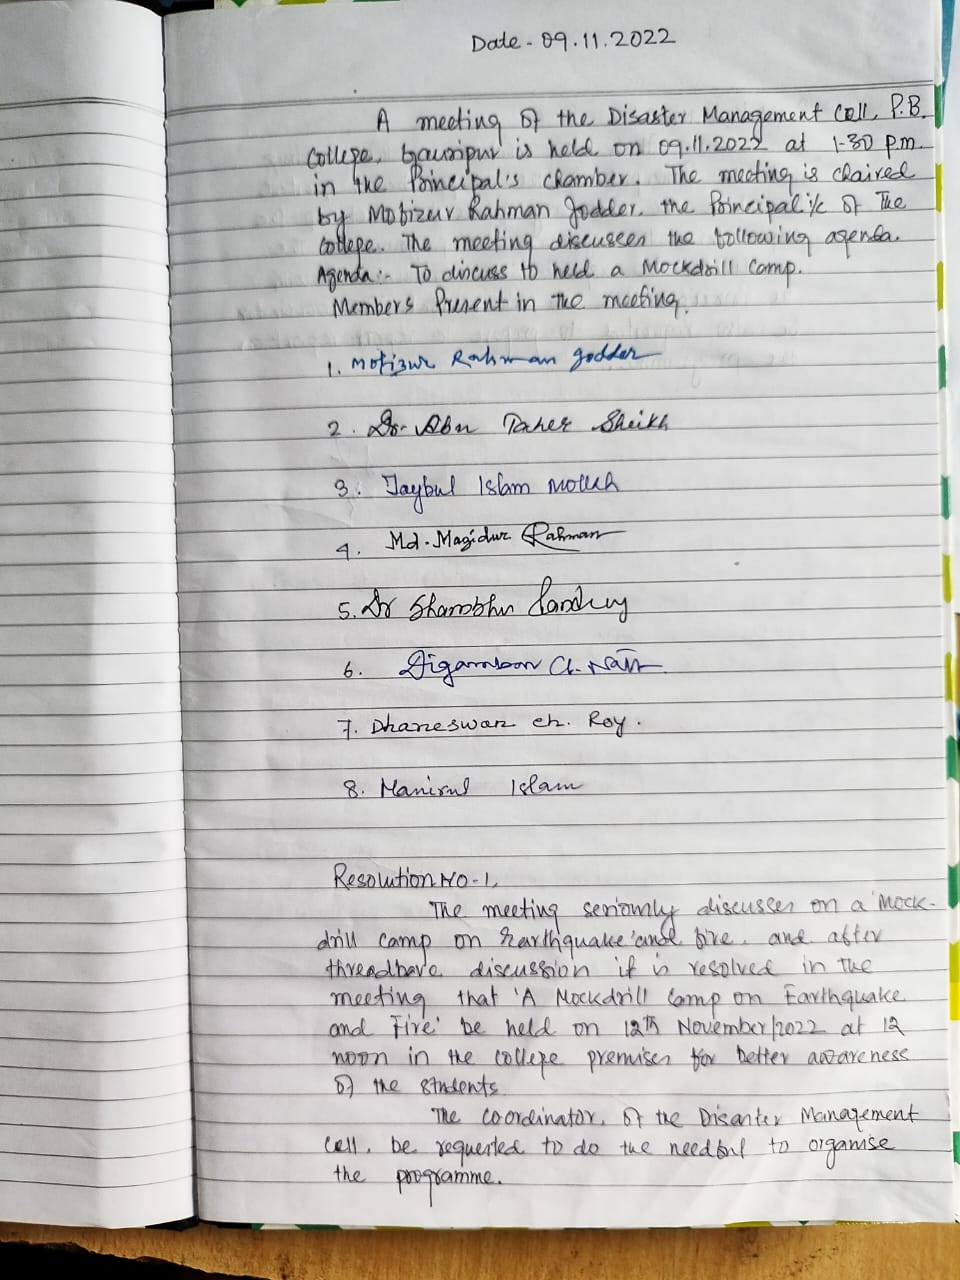 Date - 09.11.2022
A meeting of the Disaster Management Cell, P.B.
College, Gauripur is held on 09.11.2022 at 1-30 p.m.
in the Principal's chamber. The meeting is chaired
by Mofizur Rahman Jodder, the Principal i/c of The
College. The meeting discusses the following agenda.
Agenda:- To discuss to held a Mockdrill Camp.
Members Present in the meeting.
1. Mofizur Rahman Jodder
2. Dr. Abu Taher Sheikh
3. Jaybul Islam Mollah
4. Md. Mazidur Rahman
5. Dr Shambhu
6. Digambar Ch. Nath
7. Dhaneswar ch. Roy.
8. Manirul Islam
Resolution No-1,
The meeting seriously discusses on a 'Mock-
drill camp on Earthquake' and fire, and after
threadbare discussion it is resolved in the
meeting that 'A Mockdrill Camp on Earthquake
and Fire' be held on 12th November/2022 at 12
noon in the college premises for better awareness
of the students.
The coordinator, of the Disaster Management
Cell, be requested to do the needful to organise
the programme.